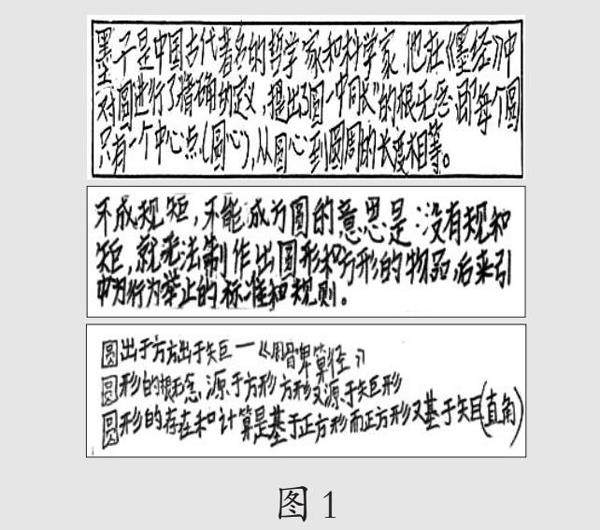 墨子是中国古代著名的哲学家和科学家,他在《墨经》中
对圆进行了精确的定义,提出了圆一中同长"的概念,即每个圆
只有一个中心点(圆心),从圆心到圆周的长度相等。
不成规矩,不能成方圆的意思是:没有规和
矩,就无法制作出圆形和方形的物品,后来引
申为行为举止的标准和规则。
圆出于方方出于矩—《周髀算径》
圆形的概念源于方形方形又源于矩形
圆形的存在和计算是基于正方形而正方形又基于矩(直角)
图1